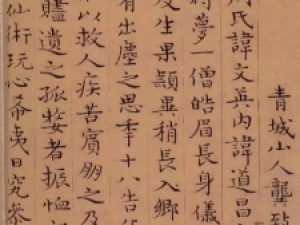 青城山人龔致
周氏諱文英內諱道昌
時夢一僧皓眉長身儀
及生果穎異稍長入鄉
有出塵之思年十八告
以救人疾苦實朋之及
贐遺之孤嫠者振恤
仙術玩心希夷日究參